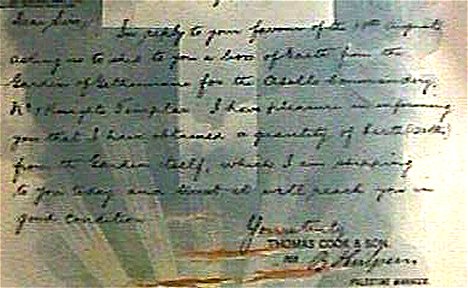 Dear Sir,
In reply to your favour of the 10th August,
asking us to send to you a box of earth from the
Garden of Gethsemane for the Commandery,
Knights Templar I have pleasure in informing
you that I have obtained a quantity of earth
from the Garden itself, which I am shipping
to you today and trust it will reach you in
good condition
Yours truly
THOMAS COOK & SON
PALESTINE MANAGER